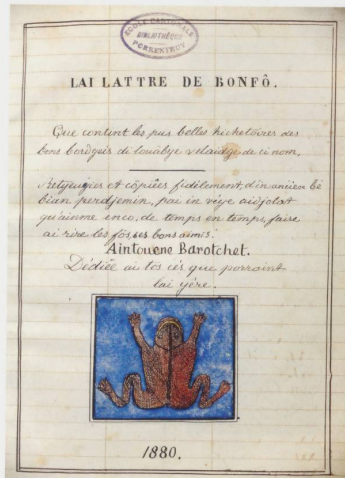 ECOLE CANTONALE
BIBLIOTHÈQUE
PORRENTRUY
LAI LATTRE DE BONFÔ.
Que contint les pus belles hichetoires des
bons bordgeis di louübye vélaidge de ci nom,
Retyeuyies et côpiées fidèlement, d'in ancien bé
bieau perdjemin, pai in véye aidjolat
qu'ainme enco, de temps en temps, faire
ai rire les fôs, ses bons aimis:
Aintouene Barotchet.
Dédiée ai tos cés que porraint
lai yére.
1880.